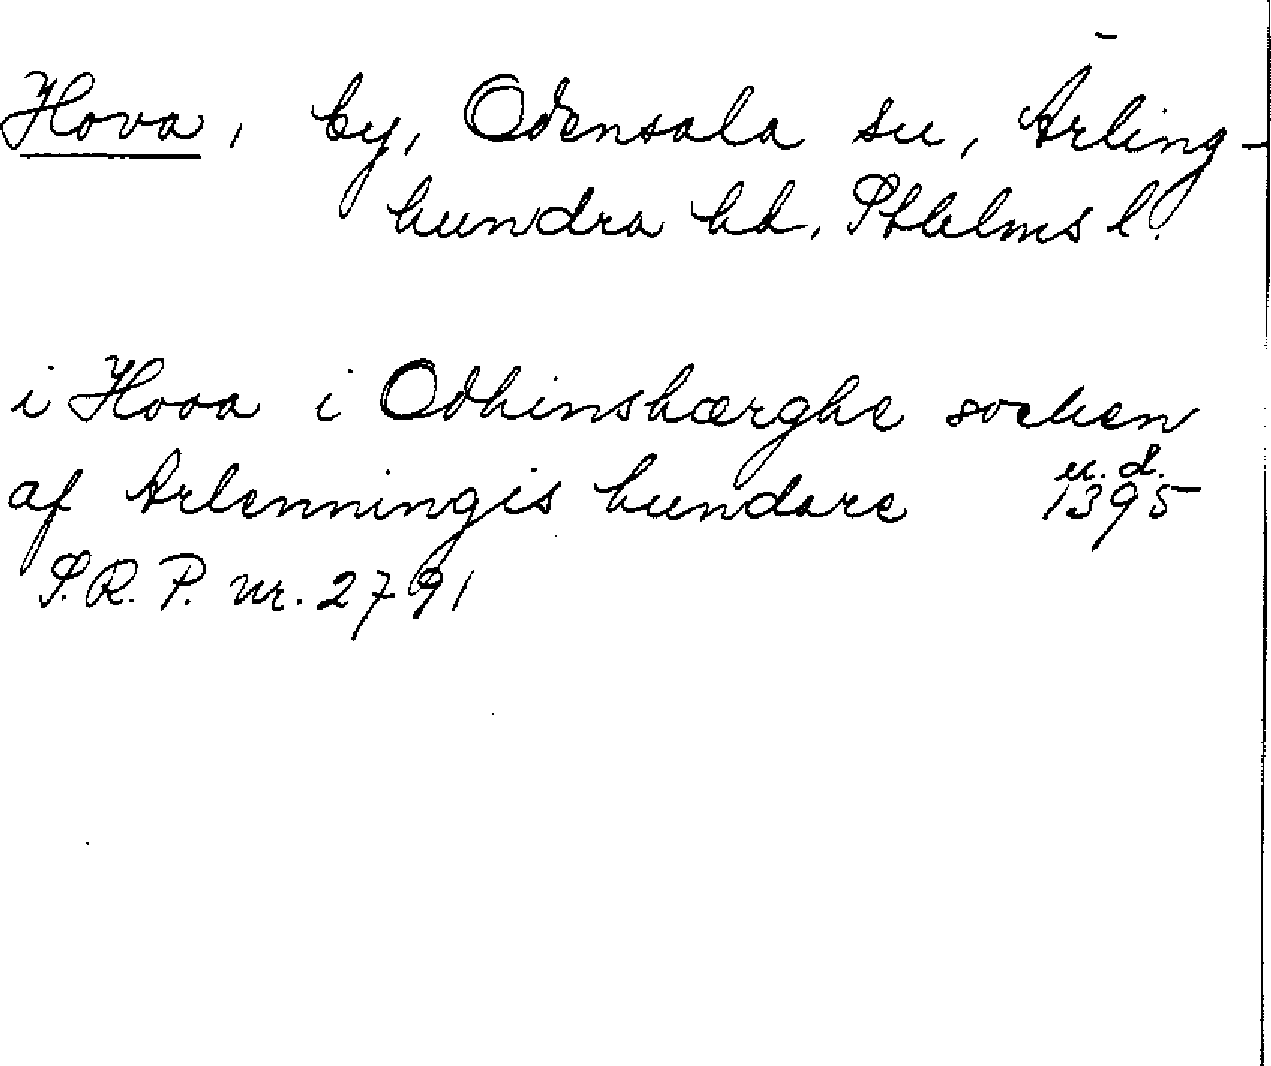 Hova, by, Odensala sn, Ärling-
hundra hd, Sthlms l.
i Hoaa i Odhinshærghe socken
af Ærlenningis hundare u. d. 1395
S.R.P. nr. 2791